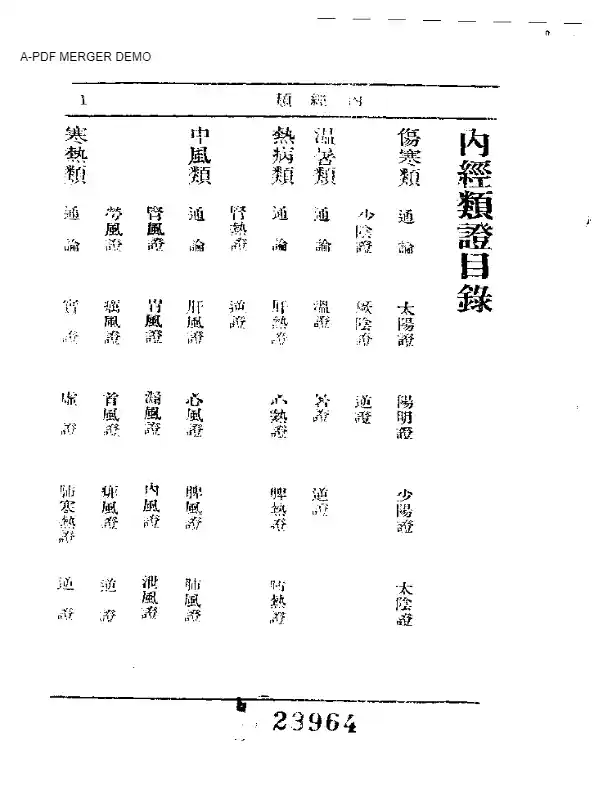 A-PDF MERGER DEMO
1 類經內
內經類證目錄
傷寒類 通論 太陽證 陽明證 少陽證 太陰證
少陰證 厥陰證 逆證
温暑類 通論 溫證 暑證 逆證
熱病類 通論 肝熱證 心熱證 脾熱證 肺熱證
腎熱證 逆證
中風類 通論 肝風證 心風證 脾風證 肺風證
腎風證 胃風證 漏風證 內風證 泄風證
勞風證 癘風證 首風證 痱風證 逆證
寒熱類 通論 實證 虛證 肺寒熱證 逆證
23964